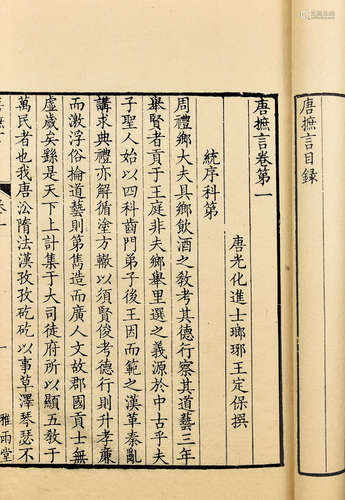 唐摭言目録
唐摭言卷第一
唐光化進士瑯琊王定保撰
統序科第
周禮鄉大夫具鄉飲酒之敎考其德行察其道藝三年
舉賢者貢于王庭非夫鄉舉里選之義源於中古乎夫
子聖人始以四科齒門弟子後王因而範之漢革秦亂
講求典禮亦解循塗方轍以須賢俊考德行則升孝廉
而激浮俗掄道藝則第雋造而廣人文故郡國貢士無
虛歲矣繇是天下上計集于大司徒府所以顯五敎于
萬民者也我唐㳂隋法漢孜孜矻矻以事草澤琴瑟不
雅雨堂